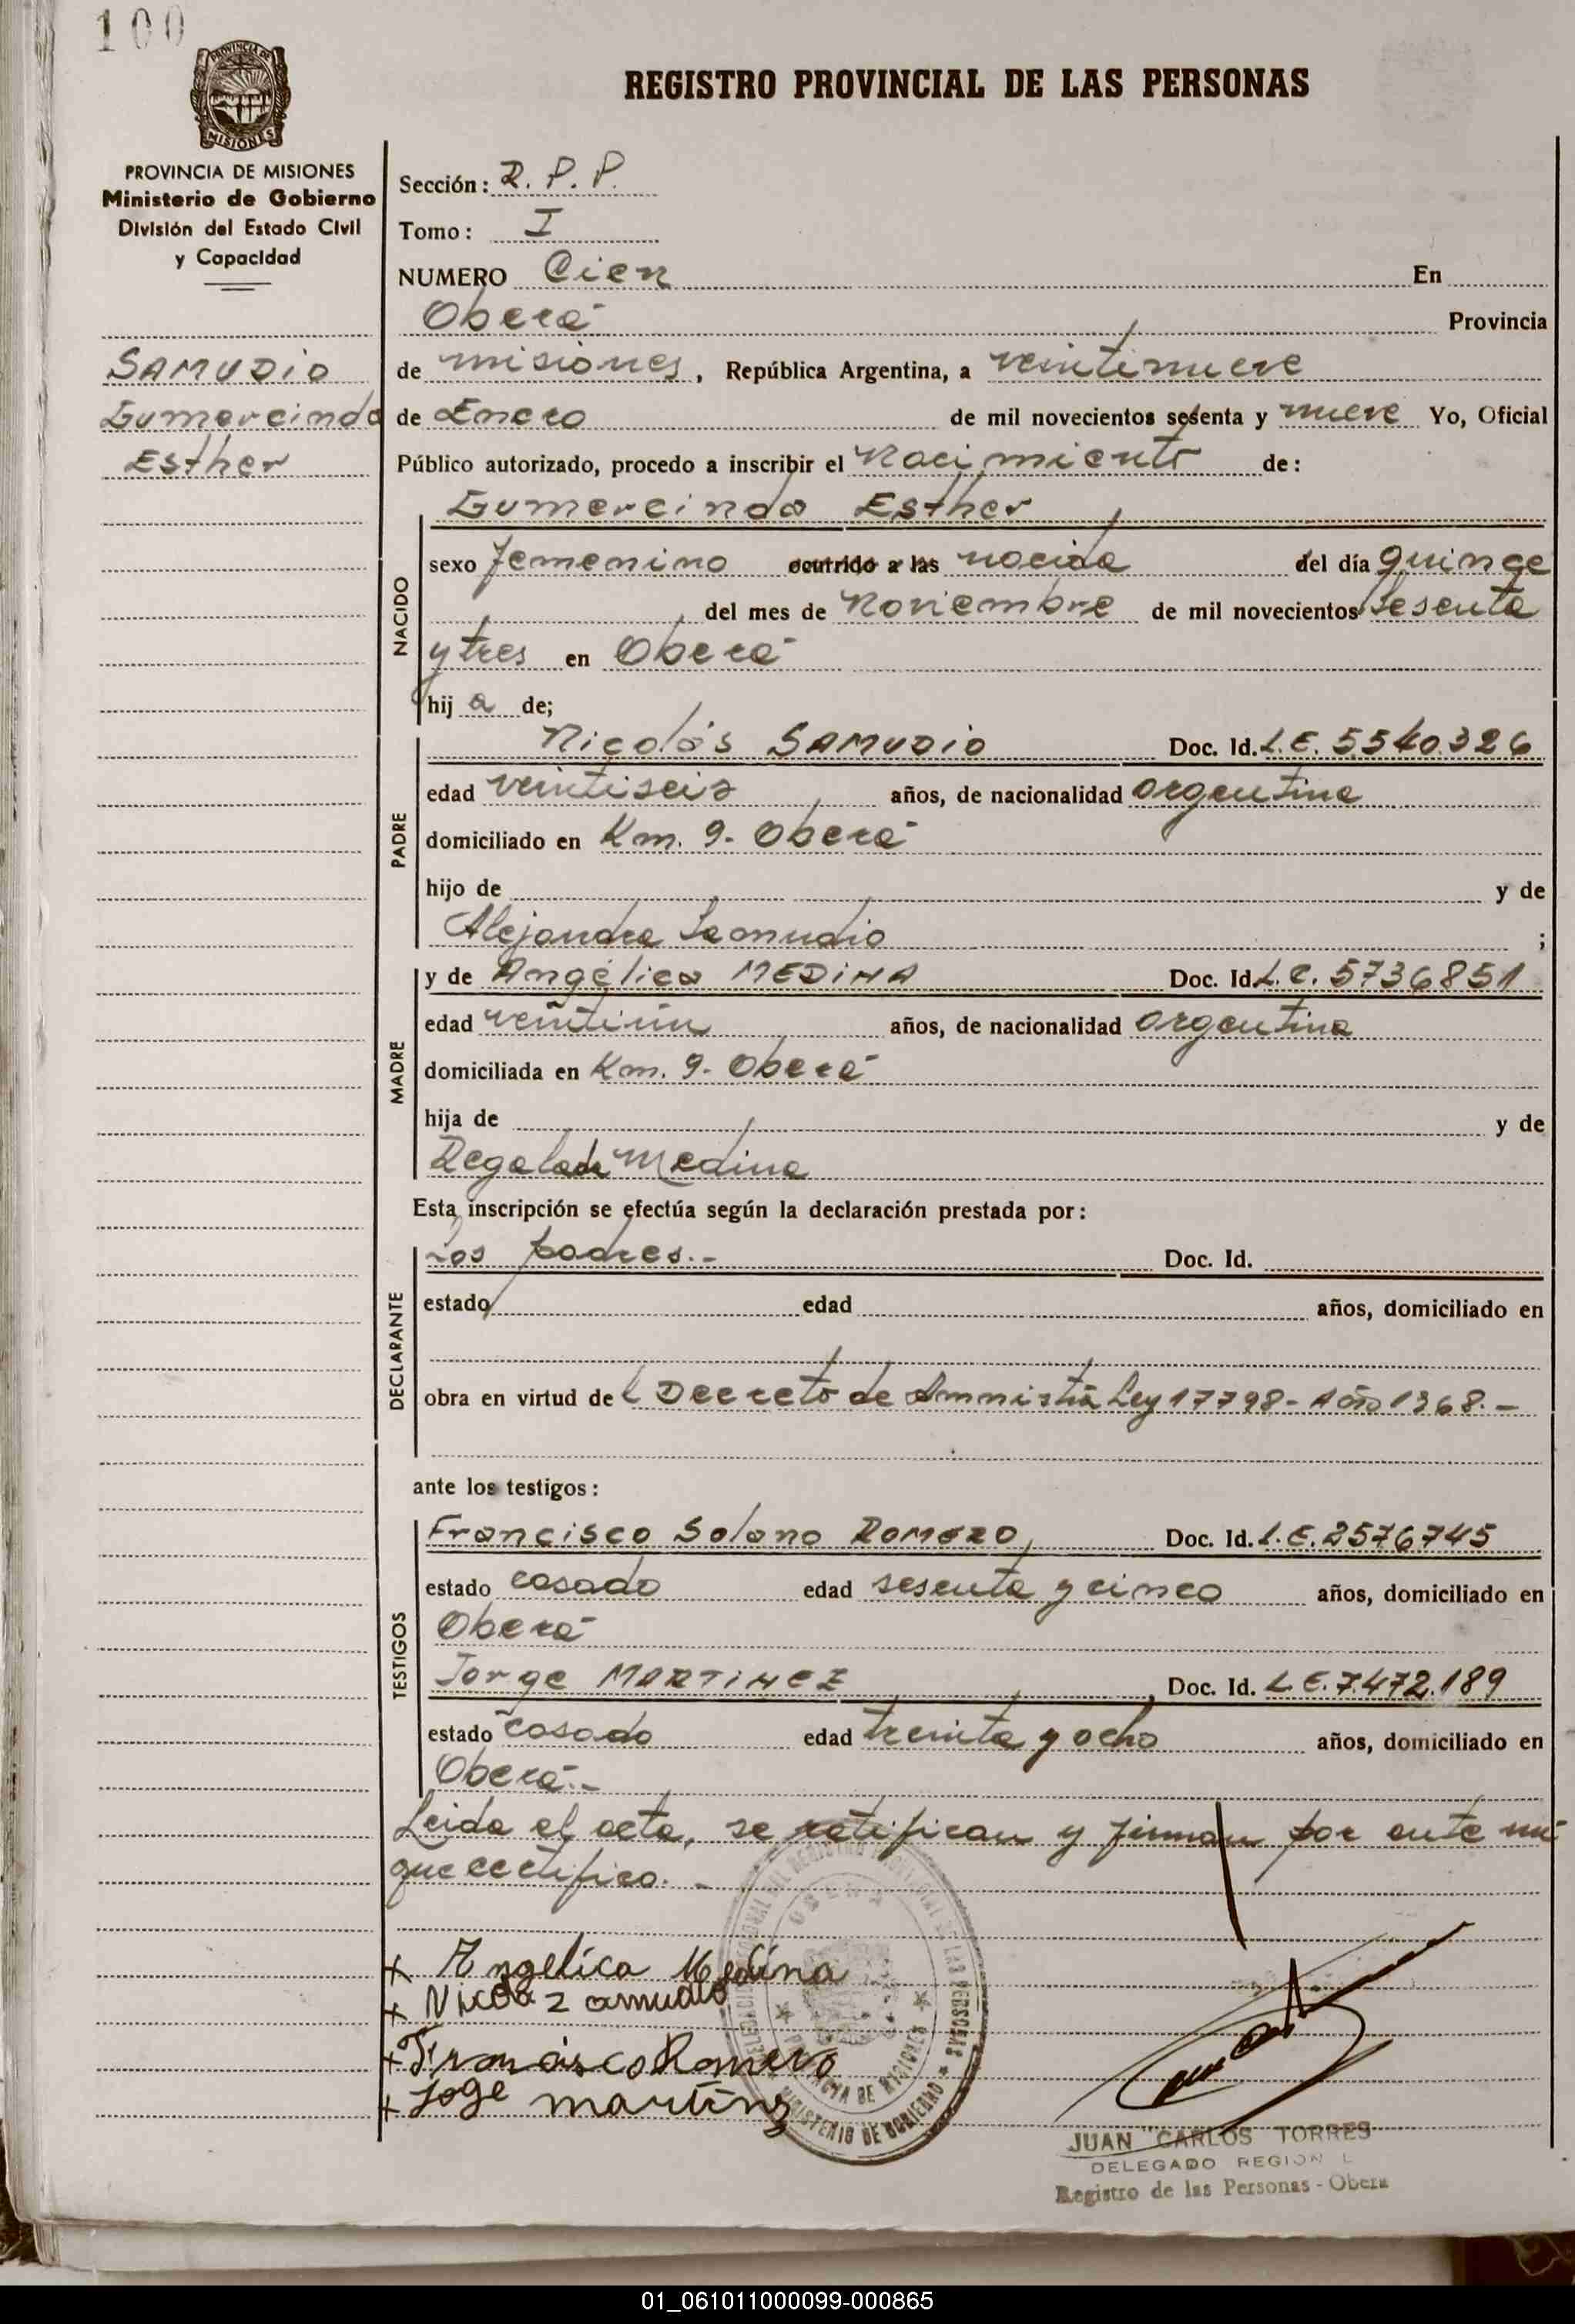 100
REGISTRO PROVINCIAL DE LAS PERSONAS
PROVINCIA DE MISIONES
MISIONES
PROVINCIA DE MISIONES
Ministerio de Gobierno
División del Estado Civil
y Capacidad
SAMUDIO
Gumercinda
Esther
Sección: R. P. P.
Tomo: I
NUMERO Cien En
Oberá Provincia
de misiones, República Argentina, a veintinueve
de Enero de mil novecientos sesenta y nueve Yo, Oficial
Público autorizado, procedo a inscribir el Nacimiento de:
Gumercinda Esther
NACIDO
sexo femenino ocurrido a las nacida del día quince
del mes de Noviembre de mil novecientos sesenta
y tres en Oberá
hij a de;
PADRE
Nicolás SAMUDIO Doc. Id. L.E. 5.540.326
edad veintiseis años, de nacionalidad argentina
domiciliado en Km. 9. Oberá
hijo de y de
Alejandra Samudio ;
MADRE
y de Angélica MEDINA Doc. Id. L.C. 5736851
edad veintiún años, de nacionalidad argentina
domiciliada en Km. 9. Oberá
hija de y de
Regalada Medina
Esta inscripción se efectúa según la declaración prestada por:
DECLARANTE
Los padres.- Doc. Id.
estado edad años, domiciliado en
obra en virtud de l Decreto de Amnistía Ley 17798- Año 1968.-
ante los testigos:
TESTIGOS
Francisco Solano ROMERO, Doc. Id. L.E. 2576745
estado casado edad sesenta y cinco años, domiciliado en
Oberá
Jorge MARTINEZ Doc. Id. L.E. 7.472.189
estado casado edad treinta y ocho años, domiciliado en
Oberá.-
Leida el acta, se ratifican y firman por ante mi
que certifico.-
+ Angelica Medina
+ Nicolaz amudio
+ Francisco Romero
+ Joge martinz
OBERA
REGISTRO PROVINCIAL DE LAS PERSONAS
PROVINCIA DE MISIONES
MINISTERIO DE GOBIERNO
JUAN CARLOS TORRES
DELEGADO REGIONAL
Registro de las Personas - Obera
01_061011000099-000865